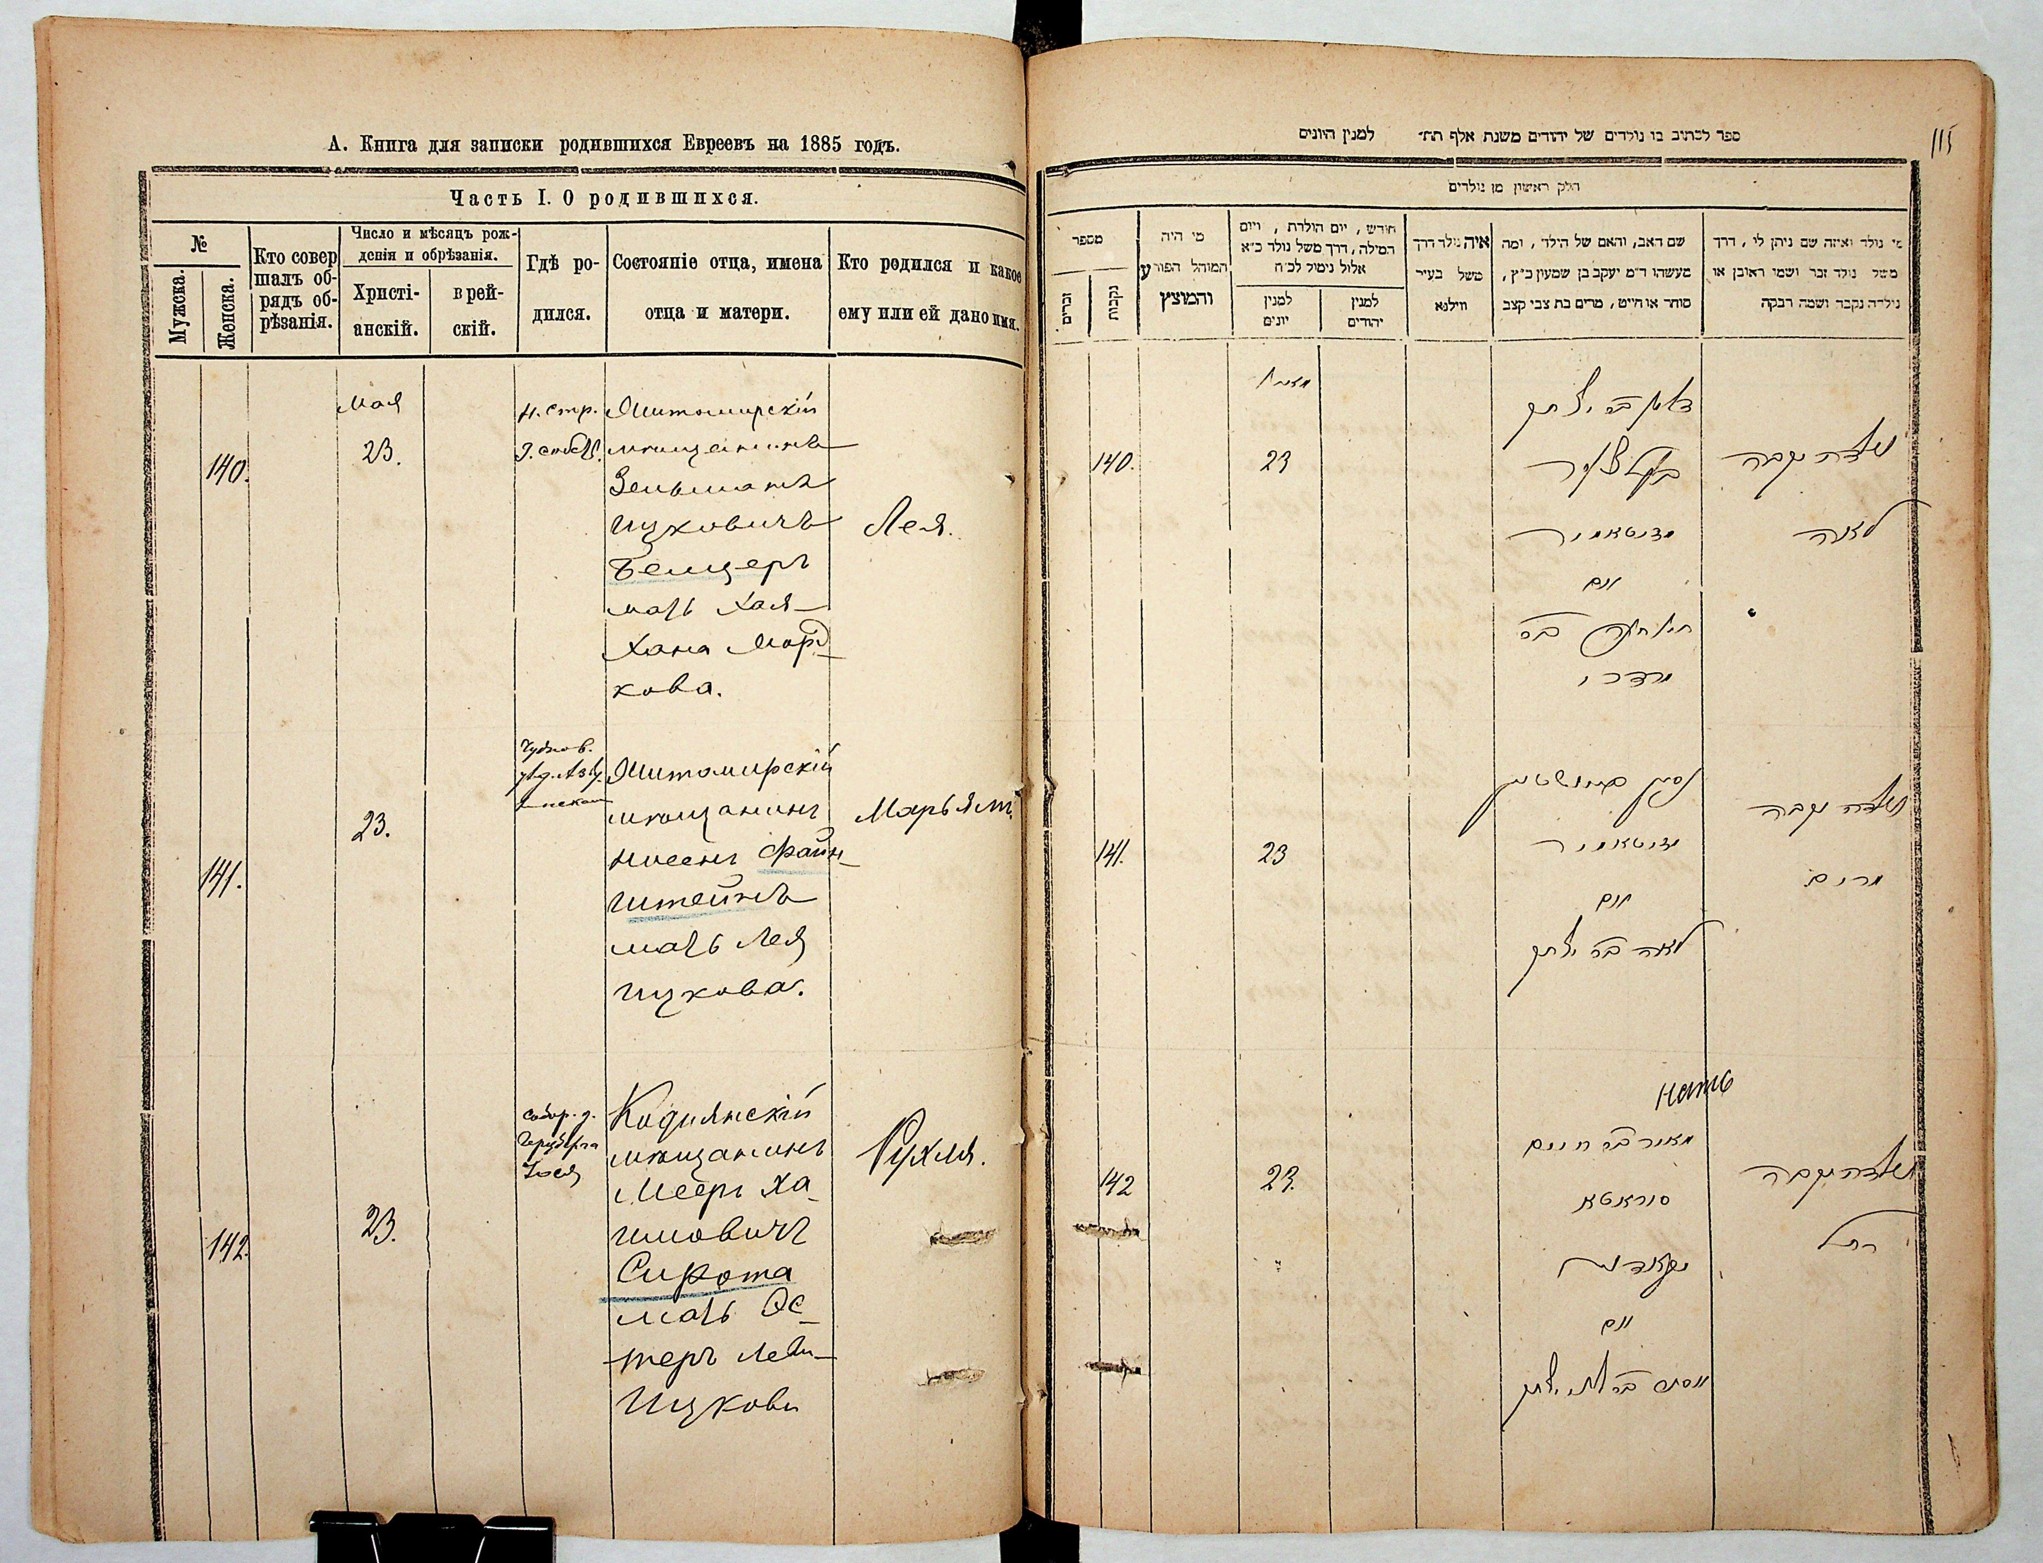 А. Книга для записки родившихся Евреевъ на 1885 годъ.
Часть I. О родившихся.
№
Мужска.
Женска.
Кто совер
шалъ об-
рядъ об-
рѣзанія.
Число и мѣсяцъ рож-
денія и обрѣзанія.
Христі-
анскій.
врей-
скій.
Гдѣ ро-
дился.
Состояніе отца, имена
отца и матери.
Кто родился и какое
ему или ей дано имя.
140.
Мая
23.
Н. стр.
Житомирскій
мѣщанинъ
Зельманъ
Ицковичъ
Бемцеръ
мать Хая
Хана Морд
кова.
Лея.
141.
23.
Чуднов.
Житомирскій
мѣщанинъ
Нисенъ Файн
штейнъ
мать Лея
Ицкова.
Марьямъ
142.
23.
Собор. д.
Кодынскій
мѣщанинъ
Мееръ Ха
имовичъ
Сирота
мать Эс
теръ Леви
Ицкови
Рухля.
115
ספר לכתוב בו נולדים של יהודים משנת אלף תת׳ למנין היונים
חלק ראשון מן נולדים
מספר
זכרים
נקבות
מי היה
המוהל הפורע
והמוצץ
חודש, יום הולדת, ויום
המילה, דרך משל נולד כ״א
אלול נימול לכ״ח
למנין
יונים
למנין
יהודים
איה נולד דרך
משל בעיר
ווילנא
שם האב, והאם של הילד, ומה
מעשהו ד״מ יעקב בן שמעון כ״ץ,
סוחר או חייט, מרים בת צבי קצב
מי נולד ואיזה שם ניתן לו, דרך
משל נולד זכר ושמו ראובן או
נולדה נקבה ושמה רבקה
140.
23
בר יצחק
זיטאמיר
ואם
חיה חנה בת
מרדכי
נולדה נקבה
לאה
141.
23
ניסן פיינשטיין
זיטאמיר
ואם
לאה בת יצחק
נולדה נקבה
מרים
142
23.
מאיר בר חיים
סיראטא
ואם
אסתר בת לוי יצחק
נולדה נקבה
רחל